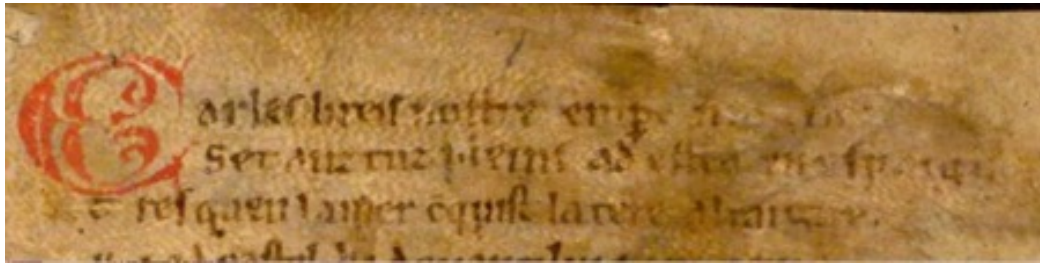 Carles li reis nostre empere magnes
Set anz tuz pleins ad estet en espaigne
T res quen la mer cũquist la tere altaigne.